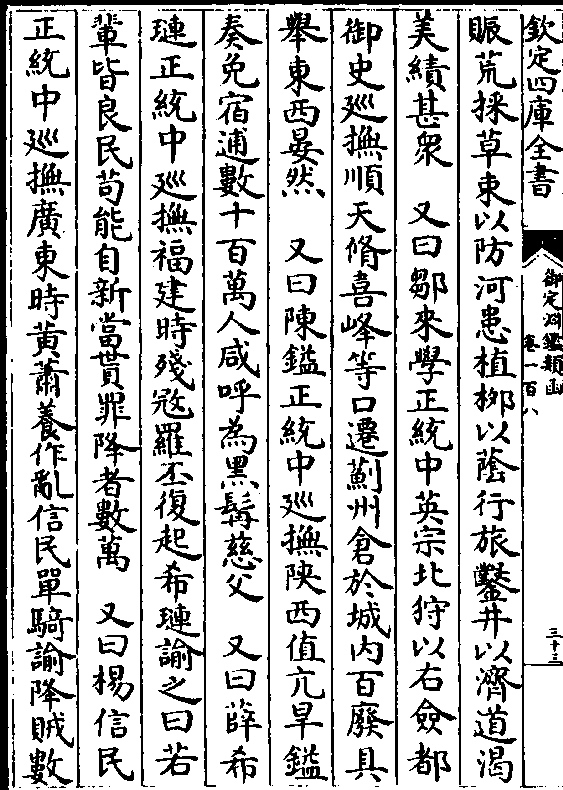 欽定四庫全書
御定淵鑑類函
卷一百八
三十三
賑荒採草束以防河患植柳以蔭行旅鑿井以濟道渴
美績甚衆　又曰鄒來學正統中英宗北狩以右僉都
御史廵撫順天脩喜峰等口遷薊州倉於城内百廢具
舉東西晏然　又曰陳鎰正統中廵撫陝西值亢旱鎰
奏免宿逋數十百萬人咸呼為黑髯慈父　又曰薛希
璉正統中廵撫福建時殘冦羅丕復起希璉諭之曰若
輩皆良民苟能自新當貰罪降者數萬　又曰楊信民
正統中廵撫廣東時黄蕭養作亂信民單騎諭降賊數